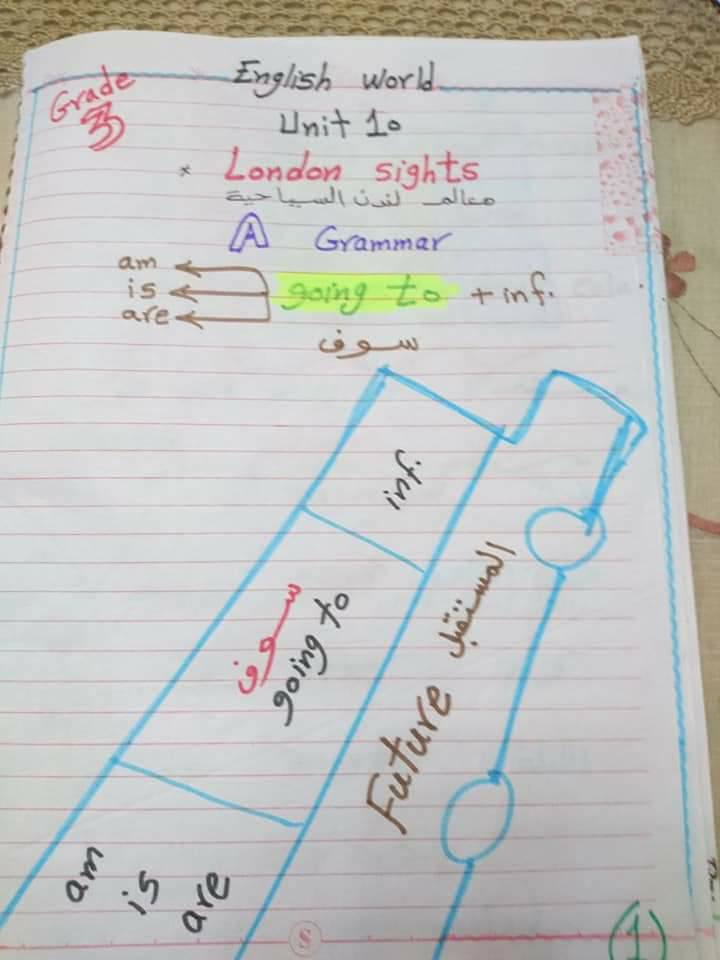 English World
Grade 3
Unit 10
* London sights
معالم لندن السياحية
A Grammar
am
is
are
going to + inf.
سوف
inf.
سوف
going to
Future المستقبل
am
is
are
S
1